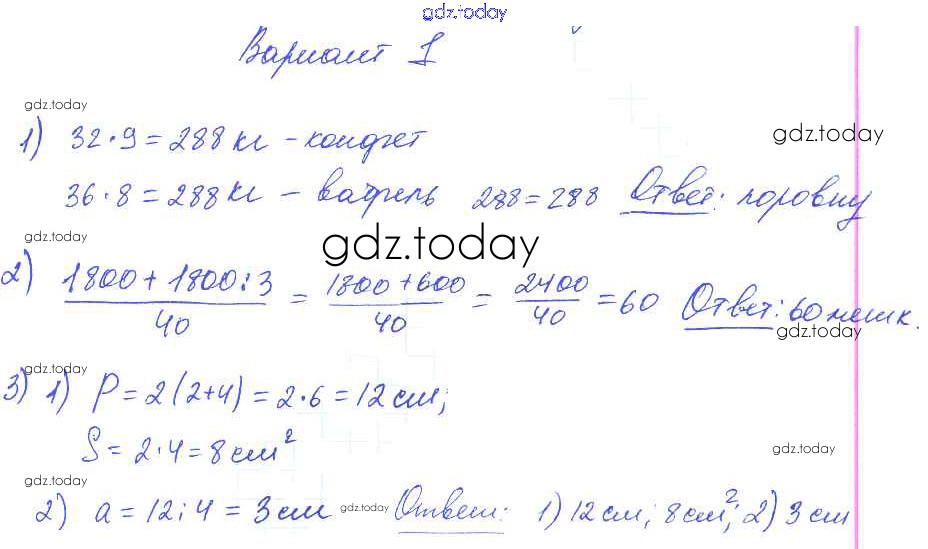 gdz.today
Вариант 1
gdz.today
1) 32·9=288 кг – конфет
gdz.today
36·8=288 кг – вафель 288=288 Ответ: поровну
gdz.today
gdz.today
2) (1800+1800:3)/40 = (1800+600)/40 = 2400/40 = 60 Ответ: 60 мешк.
gdz.today
gdz.today
3) 1) P=2(2+4)=2·6=12 см;
S=2·4=8 см²
gdz.today
gdz.today
2) a=12:4=3 см gdz.today Ответ: 1) 12 см; 8 см²; 2) 3 см